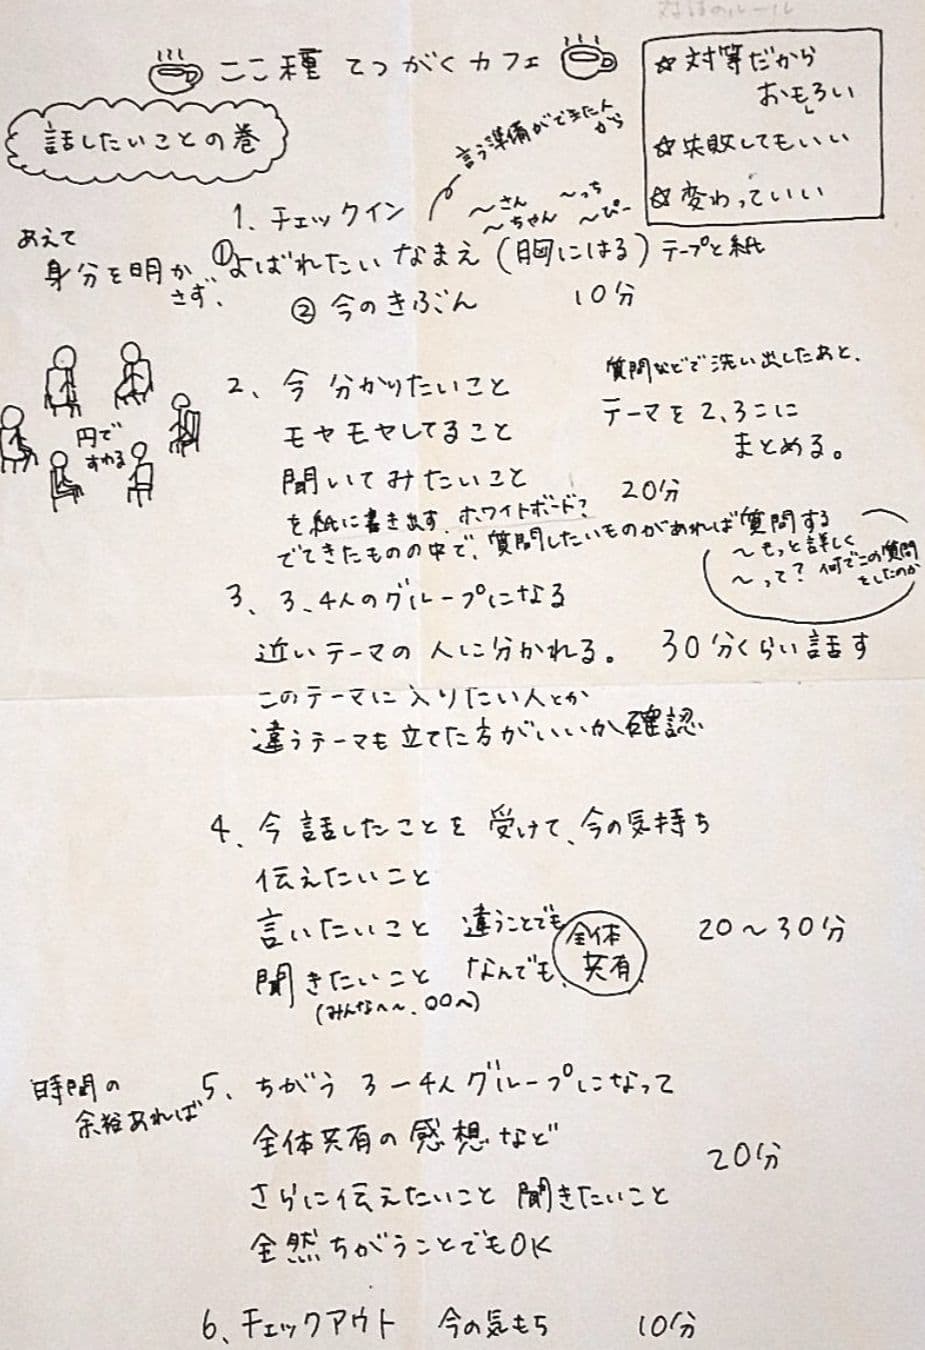 対話のルール
ここ種 てつがくカフェ
☆対等だから
おもろい
☆失敗してもいい
☆変わっていい
話したいことの巻
言う準備ができた人
から
1. チェックイン
〜さん 〜っち
〜ちゃん 〜ぴー
あえて
身分を明か
さず、
①よばれたい なまえ (胸にはる) テープと紙
② 今のきぶん 10分
円で
すわる
2、今 分かりたいこと
モヤモヤしてること
聞いてみたいこと 20分
質問などで洗い出したあと、
テーマを2、3こに
まとめる。
を紙に書き出す ホワイトボード?
でてきたものの中で、質問したいものがあれば質問する
〜もっと詳しく
〜って? 何でこの質問
をしたのか
3、3、4人のグループになる
近いテーマの人に分かれる。 30分くらい話す
このテーマに入りたい人とか
違うテーマも立てた方がいいか確認
4、今話したことを受けて、今の気持ち
伝えたいこと
言いたいこと 違うことでも
聞きたいこと なんでも、
全体
共有
20〜30分
(みんなへ〜、〇〇へ)
時間の
余裕あれば
5、ちがう3ー4人グループになって
全体共有の感想など
さらに伝えたいこと 聞きたいこと
全然ちがうことでもOK
20分
6、チェックアウト 今の気もち 10分